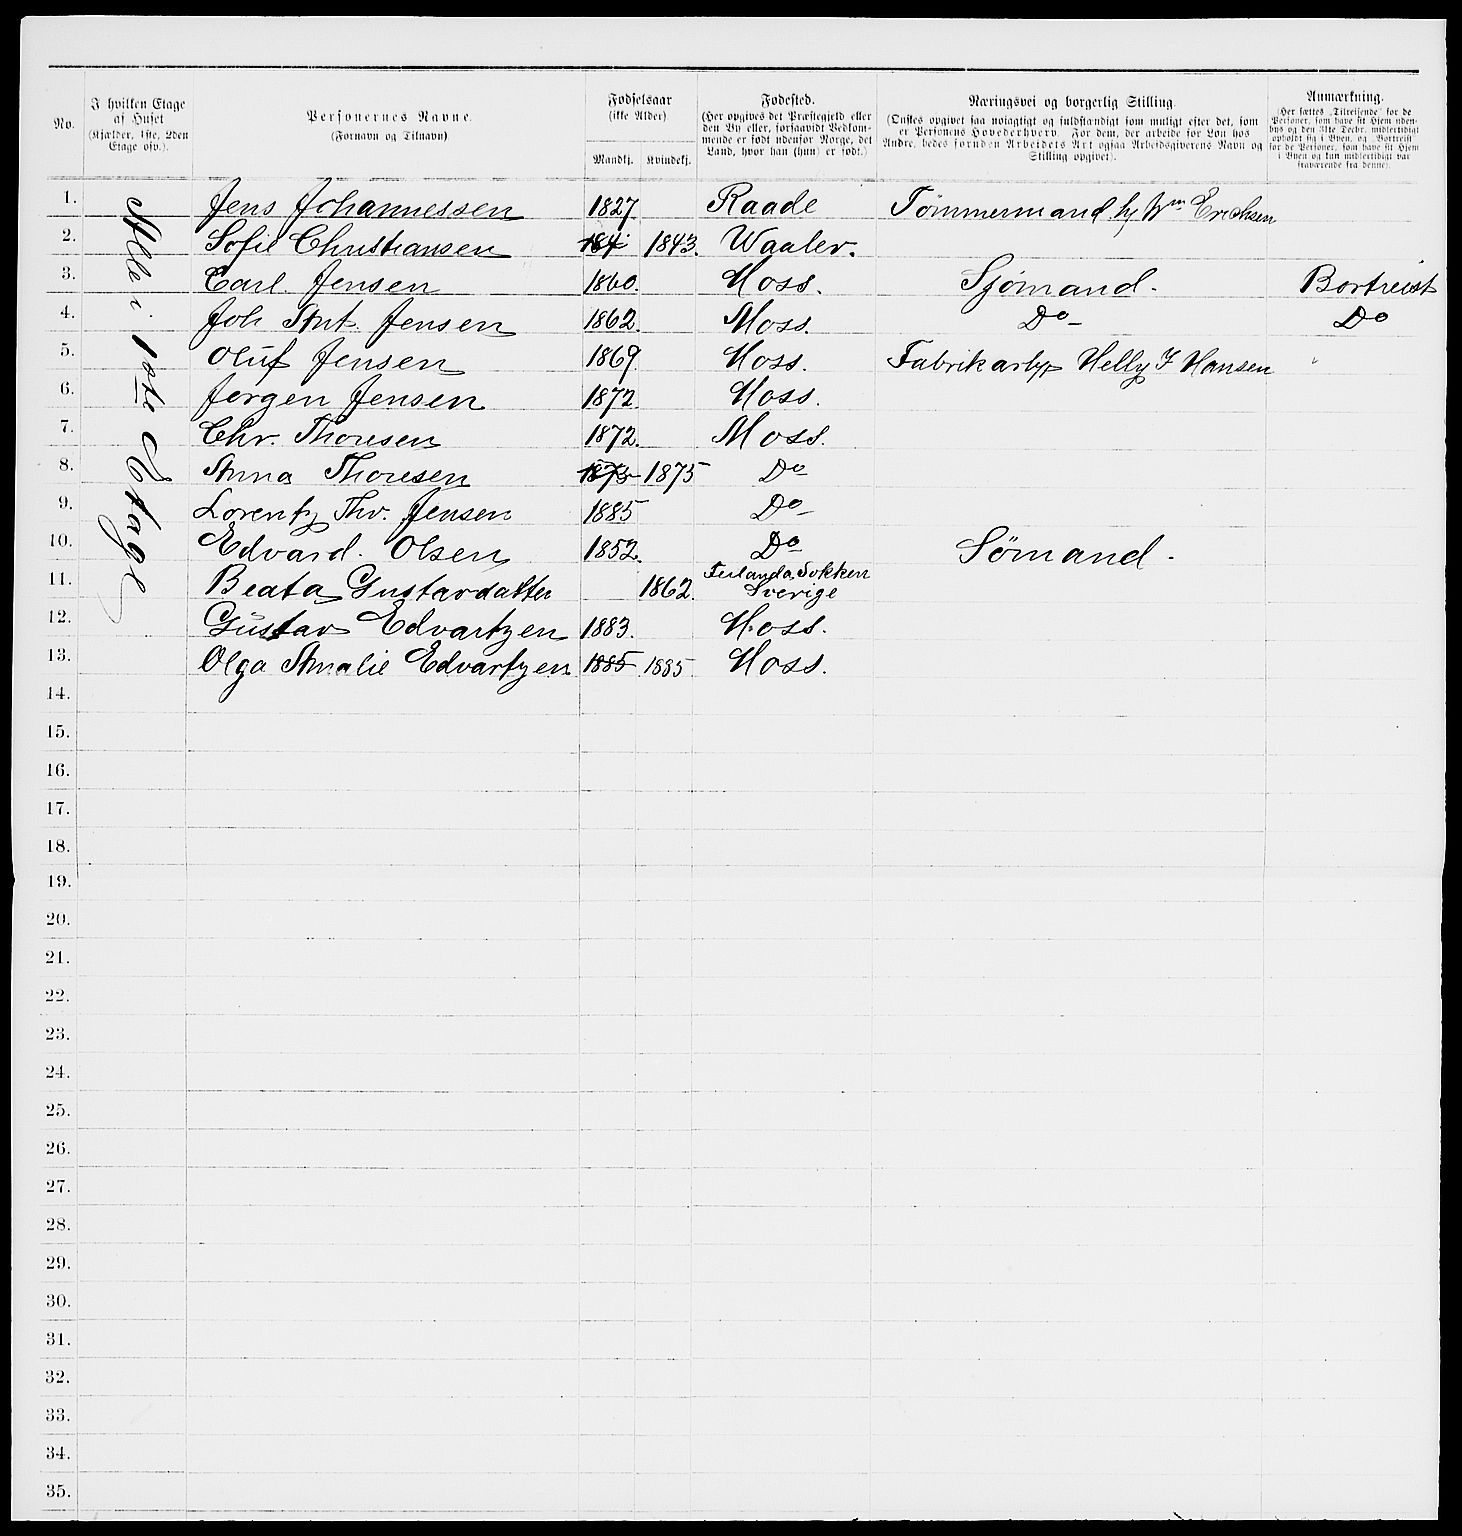 No.
I hvilken Etage
af Huset
(Kjælder, 1ste, 2den
Etage osv.).
Personernes Navne.
(Fornavn og Tilnavn).
Fødselsaar
(ikke Alder)
Mandkj. Kvindekj.
Fødested.
(Her opgives det Præstegjeld eller
den By eller, forsaavidt Vedkom-
mende er født udenfor Norge, det
Land, hvor han (hun) er født.)
Næringsvei og borgerlig Stilling.
(Ønskes opgivet saa nøiagtigt og fuldstændigt som muligt efter det, som
er Personens Hovederhverv. For dem, der arbeide for Løn hos
Andre, bedes foruden Arbeidets Art ogsaa Arbeidsgiverens Navn og
Stilling opgivet).
Anmærkning.
(Her sættes „Tilreisende“ for de
Personer, som have sit Hjem uden-
bys og den 31te Decbr. midlertidigt
opholdt sig i Byen, og „Bortreist“
for de Personer, som have sit Hjem
i Byen og kun midlertidigt var
fraværende fra denne).
Alle i 1ste Etage
1. Jens Johannessen 1827 Raade Tömmermand hj Wm Erichsen
2. Sofie Christiansen 184 1843. Waaler.
3. Carl Jensen 1860. Moss. Sjömand. Bortreist
4. Joh Ant. Jensen 1862 Moss. Do Do
5. Oluf Jensen 1869 Moss. Fabrikarb Helly J Hansen "
6. Jørgen Jensen 1872. Moss.
7. Chr. Thoresen 1872. Moss.
8. Anna Thoresen 1873 1875 Do
9. Lorentz Thv. Jensen 1885 Do
10. Edvard Olsen 1852. Do Sömand.
11. Beata Gustavdatter 1862 Sokken
Sverige
12. Gustav Edvartzen 1883. Moss.
13. Olga Amalie Edvartzen 1885 1885 Moss.
14.
15.
16.
17.
18.
19.
20.
21.
22.
23.
24.
25.
26.
27.
28.
29.
30.
31.
32.
33.
34.
35.